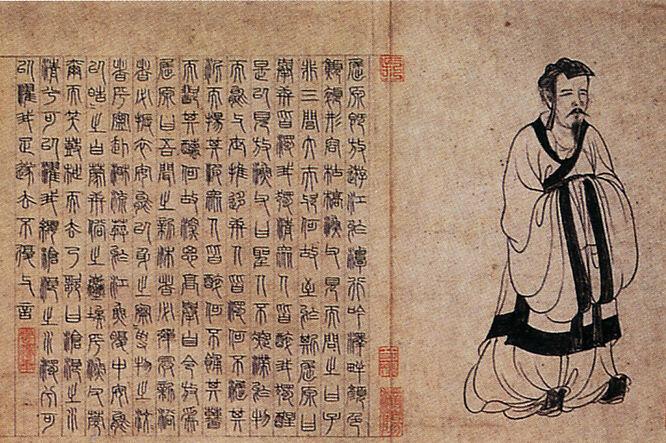 屈原既放游於江潭行吟澤畔顏色
顦顇形容枯槁漁父見而問之曰子
非三閭大夫與何故至於斯屈原曰
舉世皆濁我獨清眾人皆醉我獨醒
是以見放漁父曰聖人不凝滯於物
而能與世推移世人皆濁何不淈其
泥而揚其波眾人皆醉何不餔其糟
而歠其醨何故深思高舉自令放為
屈原曰吾聞之新沐者必彈冠新浴
者必振衣安能以身之察察受物之汶
汶者乎寧赴湘流葬於江魚腹中安能
以皓皓之白蒙世俗之塵埃乎漁父莞
爾而笑鼓枻而去乃歌曰滄浪之水
清兮可以濯我纓滄浪之水濁兮可
以濯我足遂去不復與言